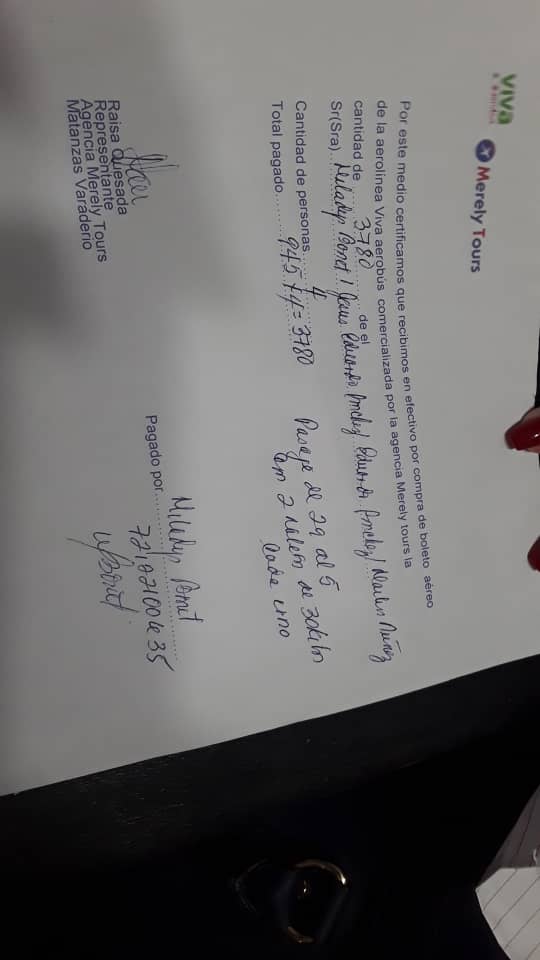 viva
Merely Tours
Por este medio certificamos que recibimos en efectivo por compra de boleto aéreo
de la aerolínea Viva aerobús comercializada por la agencia Merely tours la
cantidad de 3780 de el
Sr(Sra) Miladys Bonet / Eduardo / Eduardo / Núñez
Cantidad de personas 4
Total pagado 945 x 4 = 3780
Pasaje de 29 al 5
con 2 de 30
Cada uno
Miladys Bonet
Pagado por
Raisa Quesada
Representante
Agencia Merely Tours
Matanzas Varáderio